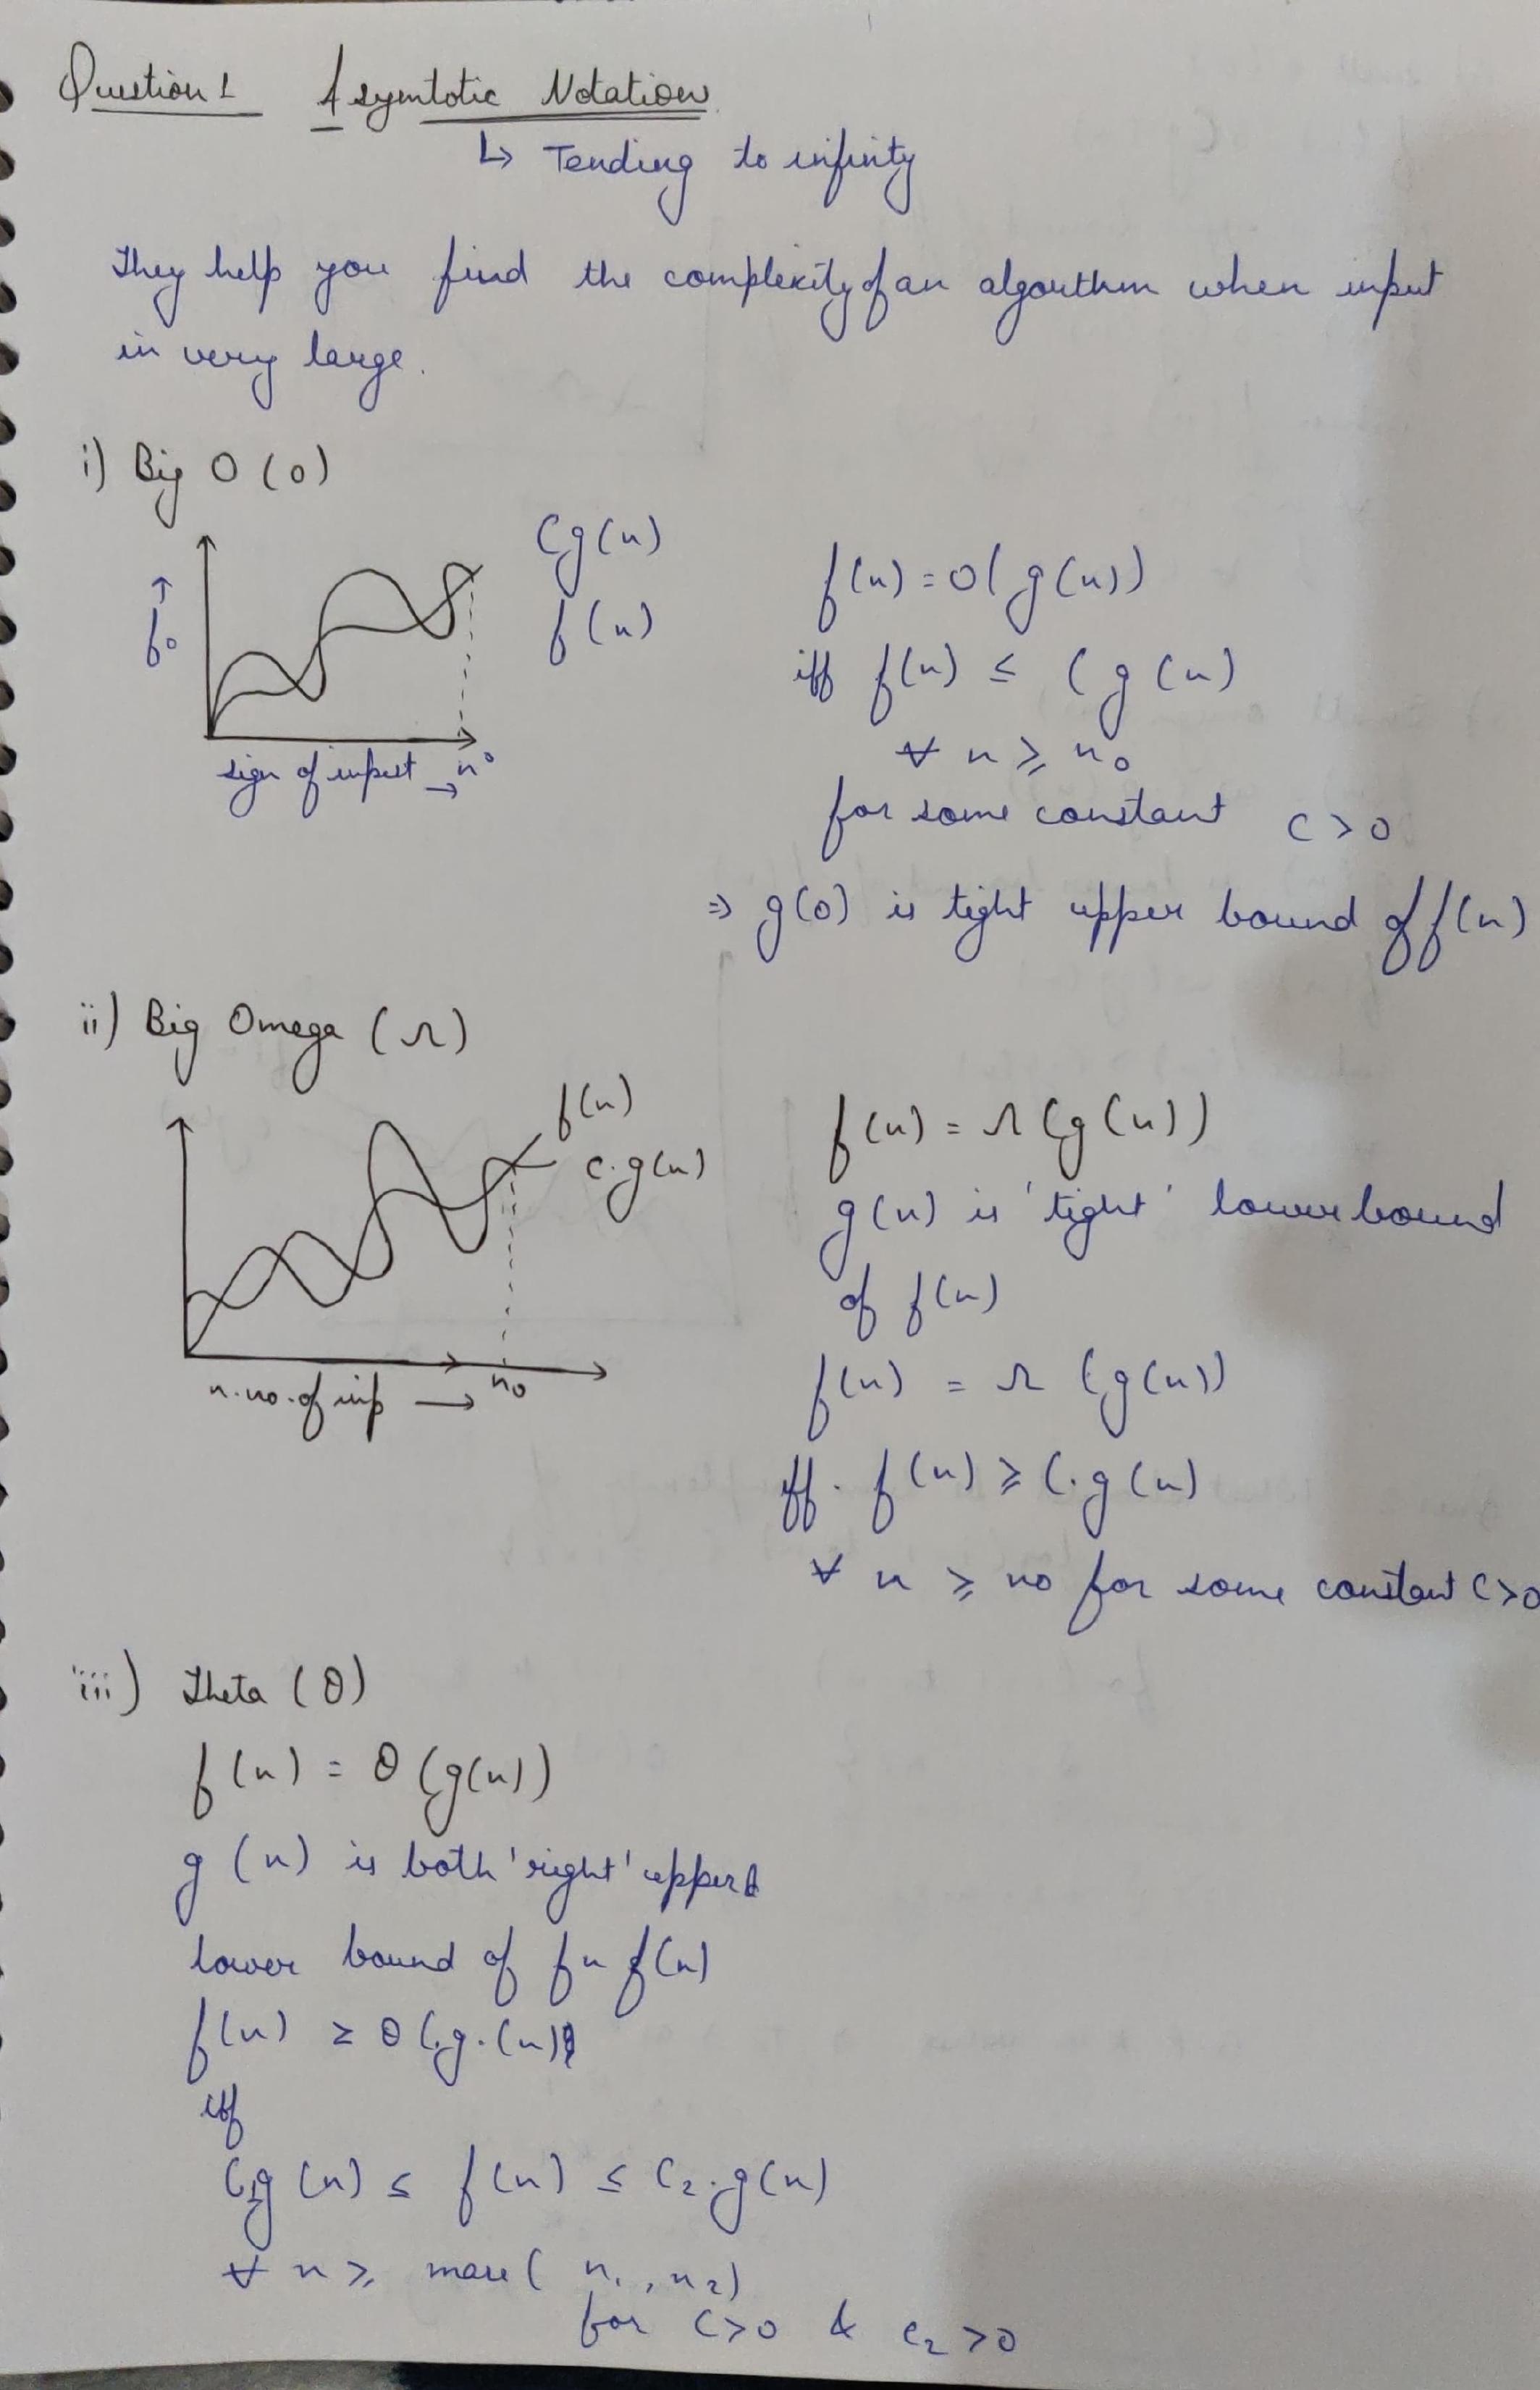 Question 1 Asymtotic Notation
↳ Tending to infinity
They help you find the complexity of an algorithm when input
in very large.
i) Big O (o)
Cg(n)
f(n)
n0
sign of input →
f(n) = O(g(n))
iff f(n) ≤ Cg(n)
∀ n ≥ n0
for some constant c > 0
⇒ g(o) is tight upper bound of f(n)
ii) Big Omega (Ω)
f(n)
c.g(n)
n. no. of inp → n0
f(n) = Ω (g(n))
g(n) is 'tight' lower bound
of f(n)
f(n) = Ω (g(n))
iff. f(n) ≥ C.g(n)
∀ n ≥ no for some constant C>0
iii) Theta (θ)
f(n) = θ (g(n))
g(n) is both 'right' upper &
lower bound of fn f(n)
f(n) ≥ θ(.g.(n))
iff
C1g(n) ≤ f(n) ≤ C2.g(n)
∀ n ≥ (n1, n2)
for C>0 & C2 >0